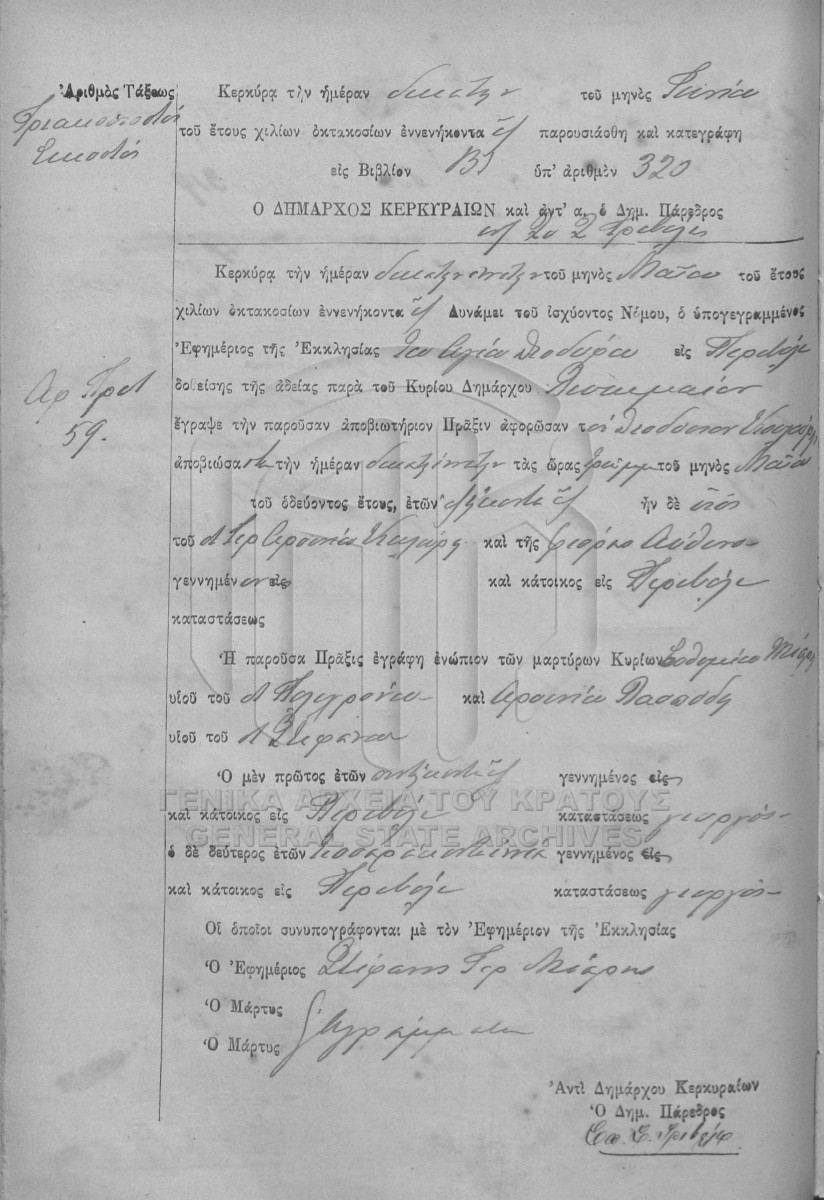 Ἀριθμὸς Τάξεως
Τριακοσιοστός
Εικοστός
Κερκύρᾳ τὴν ἡμέραν δεκάτην τοῦ μηνὸς Ἰουνίου
τοῦ ἔτους χιλίων ὀκτακοσίων ἐννενήκοντα ἓξ παρουσιάσθη καὶ κατεγράφη
εἰς Βιβλίον ὑπ' ἀριθμὸν 320
Ὁ ΔΗΜΑΡΧΟΣ ΚΕΡΚΥΡΑΙΩΝ καὶ ἀντ' α. ὁ Δημ. Πάρεδρος
Κερκύρα τὴν ἡμέραν δεκάτην πέμπτην τοῦ μηνὸς Μαΐου τοῦ ἔτους
χιλίων ὀκτακοσίων ἐννενήκοντα ἓξ Δυνάμει τοῦ ἰσχύοντος Νόμου, ὁ ὑπογεγραμμένος
Ἐφημέριος τῆς Ἐκκλησίας του Αγίου Θεοδώρου εἰς Περιβόλι
Αρ Πρωτ
59.
δοθείσης τῆς ἀδείας παρὰ τοῦ Κυρίου Δημάρχου Λευκιμαίων
ἔγραψε τὴν παροῦσαν ἀποβιωτήριον Πρᾶξιν ἀφορῶσαν τὸν Θεοδόσιον
ἀποβιώσαντα τὴν ἡμέραν δεκάτην πέμπτην τὰς ὥρας τοῦ μηνὸς Μαΐου
τοῦ ὁδεύοντος ἔτους, ἐτῶν ἑξήκοντα ἓξ ἦν δὲ υἱός
τοῦ Αρσενίου καὶ τῆς
γεννημένον εἰς καὶ κάτοικος εἰς Περιβόλι
καταστάσεως
Ἡ παροῦσα Πρᾶξις ἐγράφη ἐνώπιον τῶν μαρτύρων Κυρίων
υἱοῦ τοῦ καὶ Αρσενίου
υἱοῦ τοῦ Στεφάνου
Ὁ μὲν πρῶτος ἐτῶν γεννημένος εἰς
καὶ κάτοικος εἰς Περιβόλι καταστάσεως γεωργός
ΓΕΝΙΚΑ ΑΡΧΕΙΑ ΤΟΥ ΚΡΑΤΟΥΣ
GENERAL STATE ARCHIVES
ὁ δὲ δεύτερος ἐτῶν γεννημένος εἰς
καὶ κάτοικος εἰς Περιβόλι καταστάσεως γεωργός
Οἱ ὁποῖοι συνυπογράφονται μὲ τὸν Ἐφημέριον τῆς Ἐκκλησίας
Ὁ Ἐφημέριος Στέφανος Ιερ
Ὁ Μάρτυς
Ὁ Μάρτυς Αγράμματοι
Ἀντὶ Δημάρχου Κερκυραίων
Ὁ Δημ. Πάρεδρος